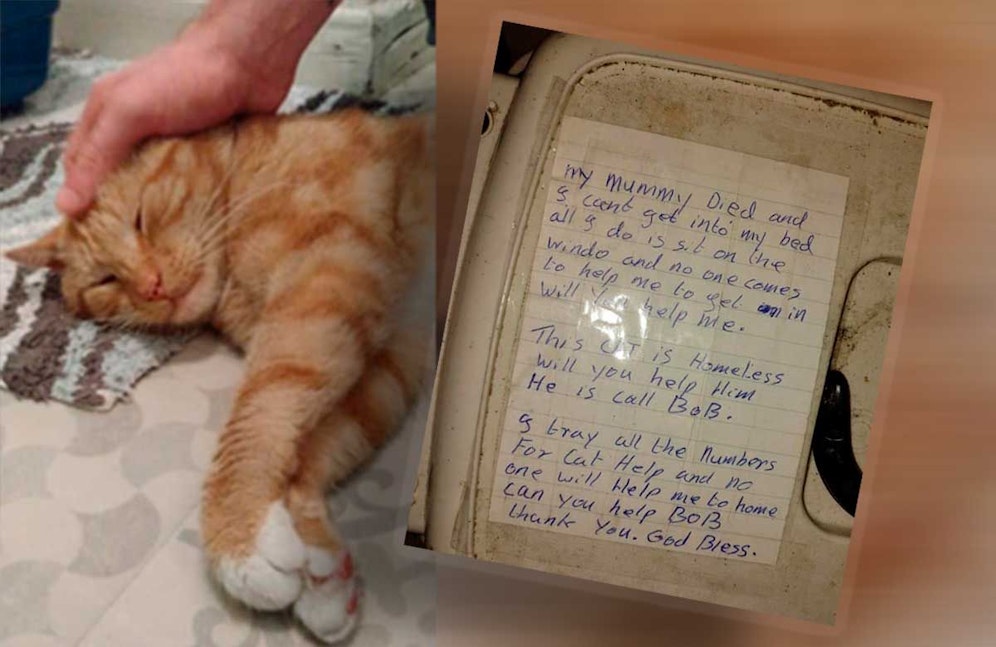 My Mummy Died and
I cant get into my bed
all I do is sit on the
windo and no one comes
to help me to get in
will you help me.
This cat is Homeless
Will you help Him
He is call BoB.
I tray all the Numbers
For Cat Help and no
one will Help me to home
can you help BoB
thank you. God Bless.